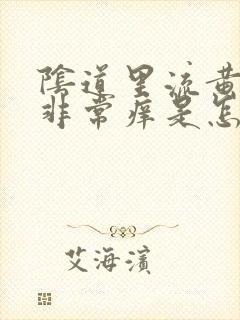 陰道里流黄
非常痒是怎
艾海濱